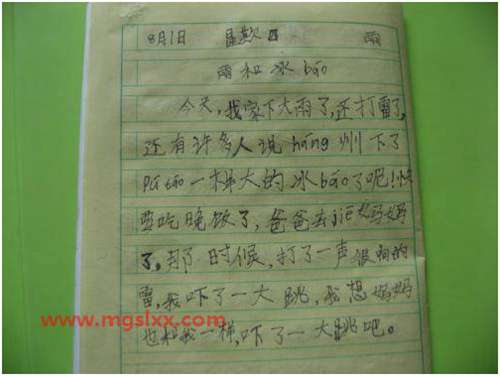 8月1日 星期四 雨
雨和冰báo
今天,我家下大雨了,还打雷了,
还有许多人说háng州下了
pú táo一样大的冰báo了呢!快
要吃晚饭了,爸爸去jiē妈妈
了,那时候,打了一声很响的
雷,我吓了一大跳,我想妈妈
也和我一样,吓了一大跳吧。
www.mgslxx.com